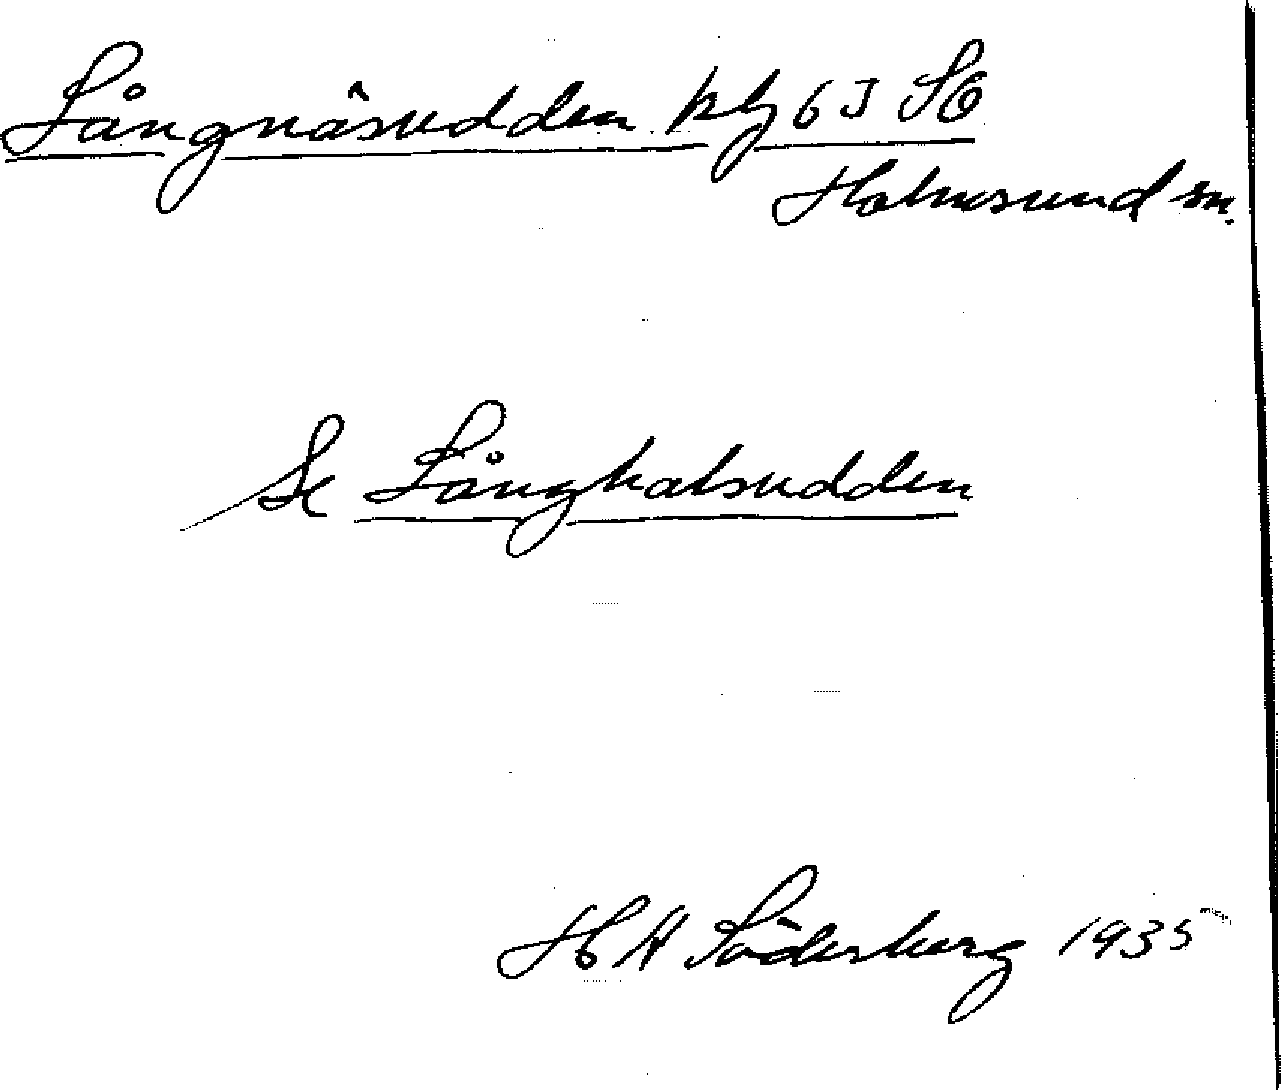 Långnäsudden kbg 63 SO
Holmsund sn.
Se Långhalsudden
H H Söderberg 1935